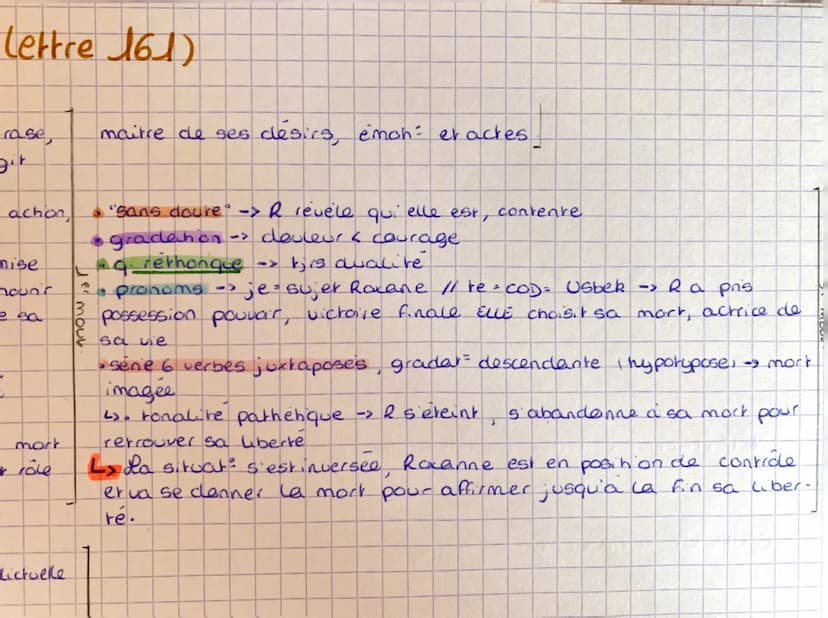 lettre 161)
rase, maitre de ses désirs, émoh= et actes
git
achon, • "sans doute" -> R révèle qu'elle est, contente
• gradation -> douleur < courage
nise • q. réthorique -> tjrs dualité
mourir • pronoms -> je = sujet Roxane // te = COD = Usbek -> R a pris
e sa possession pouvoir, victoire finale ELLE choisit sa mort, actrice de
sa vie
• série 6 verbes juxtaposés, gradat= descendante (hypotypose) -> mort
imagée
↳. tonalité pathétique -> R s'éteint, s'abandonne à sa mort pour
mort retrouver sa liberté
rôle ↳ La situat= s'est inversée, Roxanne est en position de contrôle
et va se donner la mort pour affirmer jusqu'à la fin sa liber-
té.
lictuelle